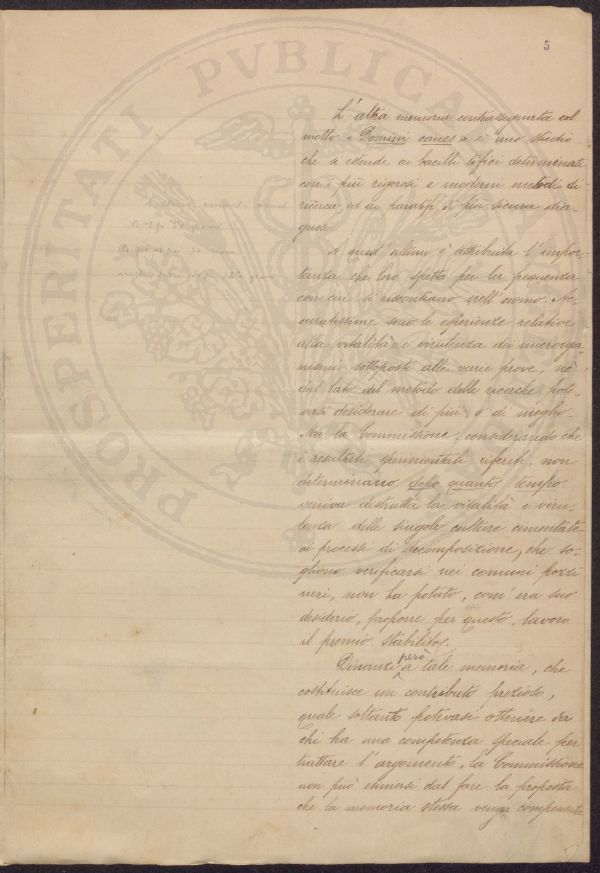 5
PROSPERITATI PVBLICA
L'altra memoria contrassegnata col
motto "Domini canes" è uno studio
che si estende ai bacilli tifici determinati
con i più rigorosi e moderni metodi di
ricerca ed ai paratifi di più sicura dia-
gnosi.
A quest'ultimi è attribuita l'impor-
tanza che loro spetta per la frequenza
con cui si riscontrano nell'uomo. Ac-
curatissime sono le esperienze relative
alla vitalità e virulenza dei microrga-
nismi sottoposti alle varie prove, nè
dal lato del metodo delle ricerche pote-
vasi desiderare di più e di meglio.
Ma la Commissione, considerando che
i resultati sperimentali riferiti, non
determinano dopo quanto tempo
veniva distrutta la vitalità e viru-
lenza delle singole culture cimentate
ai processi di decomposizione, che so-
gliono verificarsi nei comuni pozzi
neri, non ha potuto, com'era suo
desiderio, proporre per questo lavoro
il premio stabilito.
Dinanzi però a tale memoria, che
costituisce un contributo prezioso,
quale soltanto potevasi ottenere da
chi ha una competenza speciale per
trattare l'argomento, la Commissione
non può esimersi dal fare la proposta
che la memoria stessa venga compensata